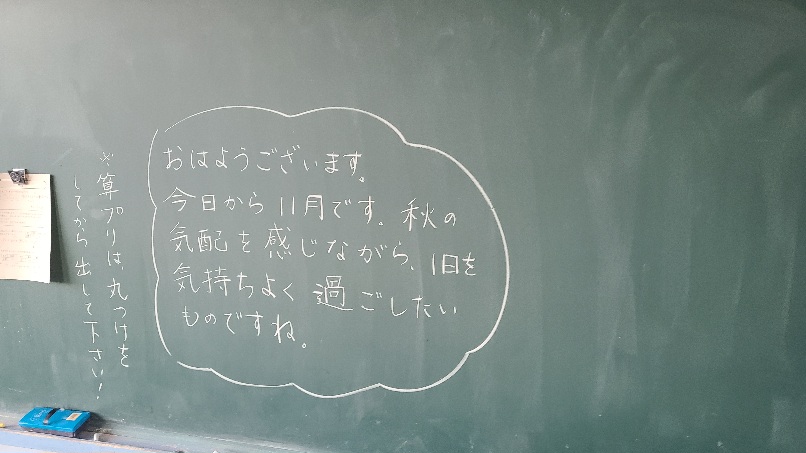 おはようございます。
今日から11月です。秋の
気配を感じながら、1日を
気持ちよく過ごしたい
ものですね。
※算プリは、丸つけを
してから出して下さい！